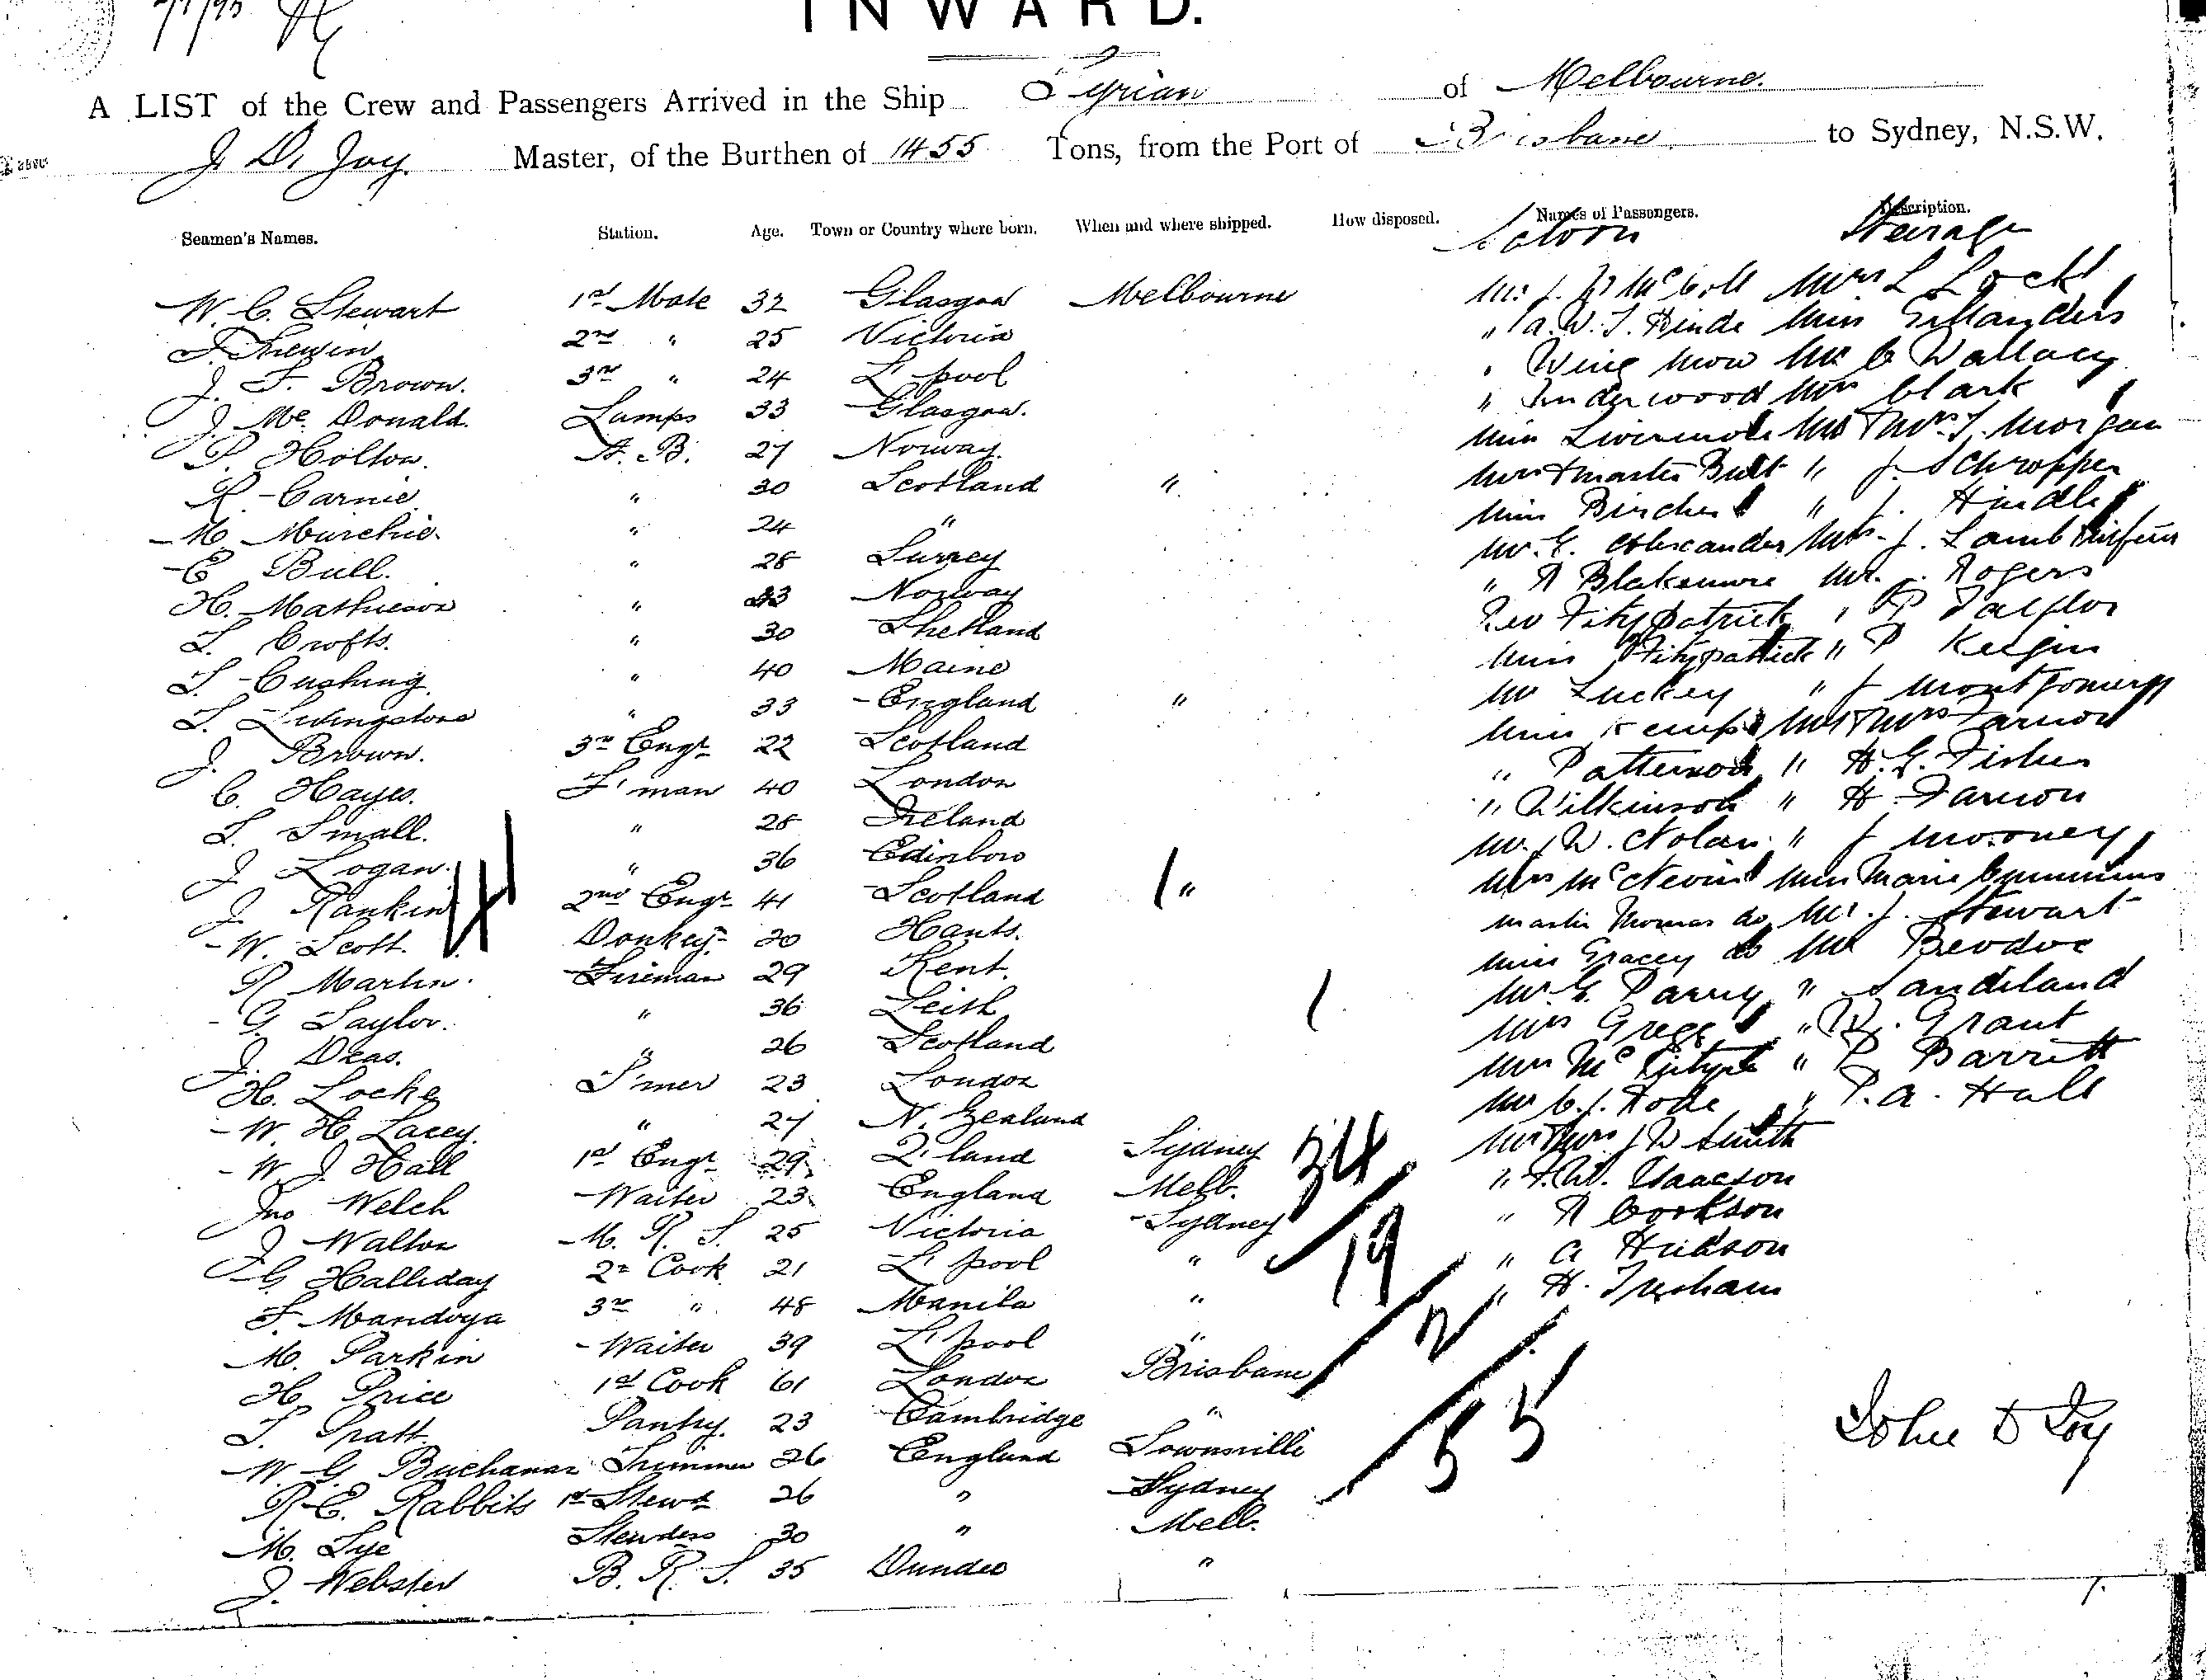 7/1/95
INWARD.
A LIST of the Crew and Passengers Arrived in the Ship Tyrian of Melbourne.
J. D. Joy. Master, of the Burthen of 1455 Tons, from the Port of Brisbane to Sydney, N.S.W.
Seamen's Names. Station. Age. Town or Country where born. When and where shipped. How disposed. Names of Passengers. Description.
Saloon Steerage
W. C. Stewart 1st Mate 32 Glasgow Melbourne
2nd " 25 Victoria
J. F. Brown. 3rd " 24 L'pool
J. Mc Donald. Lamps 33 Glasgow.
P. Holton. A. B. 27 Norway.
R. Carnie. " 30 Scotland "
M. Murchie. " 24 "
E Bull. " 28 Surrey
H. Mathieson " 23 Norway
L. Crofts. " 30 Shetland
T. Cushing. " 40 Maine
T. Livingstone " 33 England "
J. Brown. 3rd Engr 22 Scotland
C. Hayes. F'man 40 London
T. Small. " 28 Ireland
J. Logan. " 36 Edinboro
J. Rankin 2nd Engr 41 Scotland "
W. Scott. Donkey 30 Hants.
R Martin. Fireman 29 Kent.
G. Taylor. " 36 Leith
J. Deas. " 26 Scotland
H. Locke T'mer 23 London
W. H. Lacey. " 27 N. Zealand
W. J. Hall 1st Engr 29 Q'land Sydney
Jno Welch Waiter 23 England Melb.
J Walton M. R. S. 25 Victoria Sydney
G. Halliday 2nd Cook 21 L'pool "
F. Mandoya 3rd " 48 Manila "
M. Parkin Waiter 39 L'pool "
H. Price 1st Cook 61 London Brisbane
T. Pratt. Pantry. 23 Cambridge "
W. G. Buchanan Trimmer 26 England Townsville
R. E. Rabbits 1st Stewd 26 " Sydney
M. Lye Stewdess 30 " Melb.
J. Webster B. R. S. 35 Dundee "
Mrs L Lock
" A. W. T. Hinde Miss
" Wing Mow Mr C Wallacy
" Underwood Mrs Clark
Miss Livermore Mr & Mrs T. Morgan
Mrs & Master Butt " J. Schropper
Miss Birches " J. Hindle
Mr. E. Alexander Mrs J. Lamb & infant
" R Blakemore Mr. J. Rogers
Rev Fitzpatrick " P Taylor
Miss Fitzpatrick " P
Mr Luckey " J Montgomery
Miss Kemp Mr & Mrs Farnon
" Patterson " H. G. Fisher
" Wilkinson " H. Farnon
Mr. W. Nolan " J Mooney
Mrs McNevin Miss Marie Cummins
Master Thomas do Mr. J. Stewart
Miss Gracey do Mr
Mr. G. Parry " Sandiland
Mrs Gregg " W. Grant
Mrs McIntyre " P Barritt
Mr C. J. Rode " P. A. Hall
Mr & Mrs J W Smith
" F. W. Isaacson
" R Cookson
" A Hudson
" H.
34
19
2
55
John D Joy